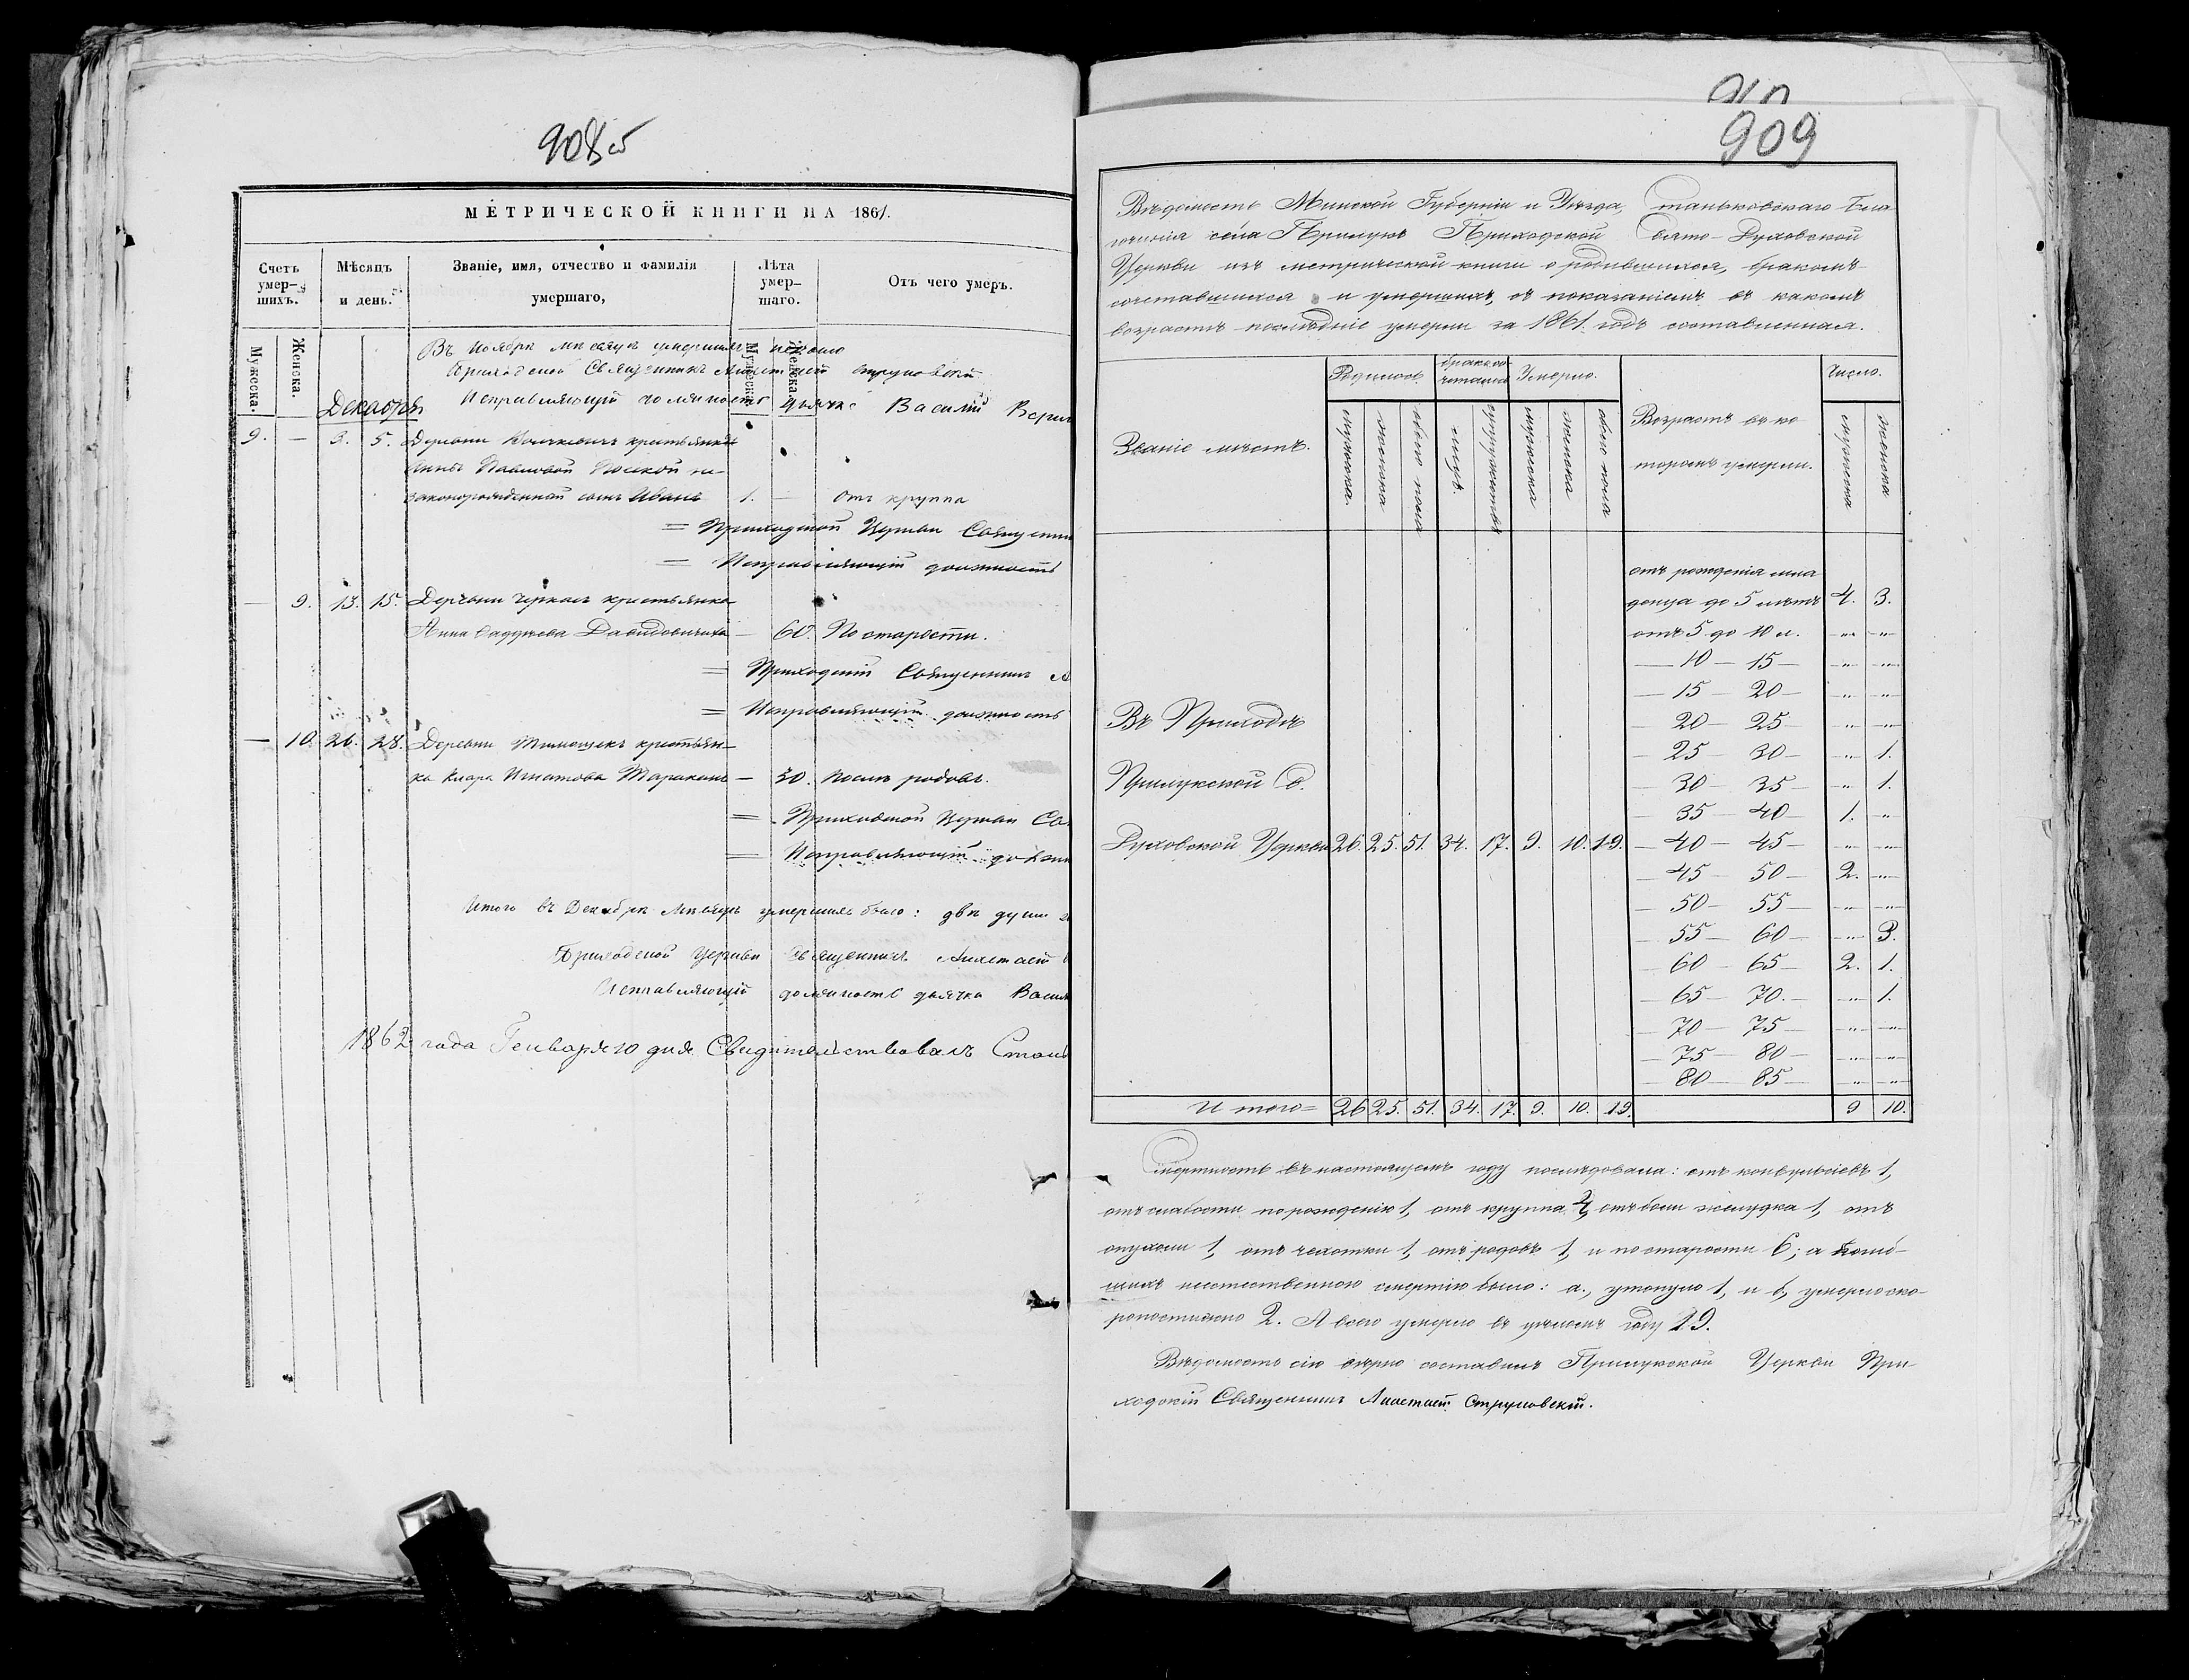 908 об
МЕТРИЧЕСКОЙ КНИГИ НА 1861.
Счетъ умер-шихъ. Мѣсяцъ и день. Званіе, имя, отчество и фамилія умершаго, Лѣта умер-шаго. Отъ чего умеръ.
Мужеска. Женска. Мужеска. Женска.
Въ Ноябрѣ мѣсяцѣ умершихъ небыло
Приходской Священникъ Анастасій Струковскій
Исправляющій должность дьячка Василій
Декабрь
9. — 3. 5. Деревни крестьянки
Анны Павловой не-
законорожденный сынъ Иванъ 1. — Отъ круппа
= Приходской Церкви
= Исправляющій должность
— 9. 13. 15. Деревни Черкасъ крестьянка
Анна Фаддѣева Давидовичиха — 60. По старости.
= Приходскій Священникъ А
= Исправляющій должность
— 10. 26. 28. Деревни Тимошекъ крестьян-
ка Клара Игнатова — 30. Послѣ родовъ.
= Приходской Церкви
= Исправляющій
Итого въ Декабрѣ мѣсяцѣ умершихъ было: двѣ души
Приходской Церкви Священникъ Анастасій
Исправляющій должность дьячка
1862 года Генваря 10 дня Свидѣтельствовалъ
910
909
Вѣдомость Минской Губерніи и Уѣзда, Станьковскаго Бла-
гочинія села Прилукъ Приходской Свято-Духовской
Церкви изъ метрической книги о родившихся, бракомъ
сочетавшихся и умершихъ, съ показаніемъ въ какомъ
возрастѣ послѣдніе умерли за 1861. годъ составленная.
Званіе мѣстъ. Родилось. бракосо-четалось Умерло. Возрастъ въ ко-торомъ умерли. Число.
мужеска женска обоего пола лицъ. супружествъ мужеска женска обоего пола мужеска женска
отъ рожденія мла-
денца до 5 лѣтъ 4. 3.
отъ 5 до 10 л. -„- -„-
— 10 — 15 — -„- -„-
— 15 — 20 — -„- -„-
— 20 — 25 — -„- -„-
— 25 — 30 — -„- 1.
— 30 — 35 — -„- 1.
— 35 — 40 — 1. -„-
— 40 — 45 — -„- -„-
— 45 — 50 — 2. -„-
— 50 — 55 — -„- -„-
— 55 — 60 — -„- 3.
— 60 — 65 — 2. 1.
— 65 — 70. — -„- 1.
— 70 — 75 — -„- -„-
— 75 — 80 — -„- -„-
— 80 — 85 — -„- -„-
Въ Приходѣ
Прилукской С.
Духовской Церкви 26. 25. 51. 34. 17. 9. 10. 19.
Итого = 26 25. 51. 34. 17. 9. 10. 19. 9 10.
Смертность въ настоящемъ году послѣдовала: отъ конвульсіевъ 1,
отъ слабости по рожденію 1, отъ круппа 4, отъ боли желудка 1, отъ
опухоли 1, отъ чахотки 1, отъ родовъ 1, и по старости 6; а
неестественною смертію было: а., утонуло 1, и b, умерло ско-
ропостижно 2. А всего умерло въ цѣломъ году 19.
Вѣдомость сію вѣрно составилъ Прилукской Церкви При-
ходскій Священникъ Анастасій Струковскій.